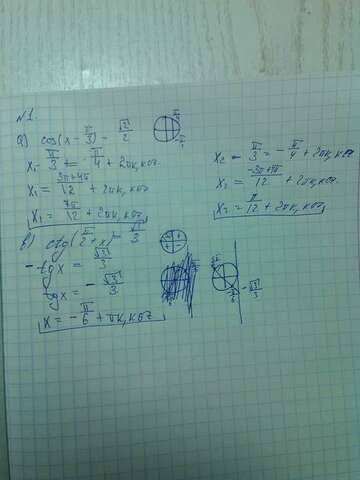 №1.
а) cos(x - π/3) = √2/2
x₁ - π/3 = π/4 + 2πk, k∈z
x₁ = 3π+4π/12 + 2πk, k∈z
x₁ = 7π/12 + 2πk, k∈z
x₂ - π/3 = -π/4 + 2πk, k∈z
x₂ = -3π+4π/12 + 2πk, k∈z
x₂ = π/12 + 2πk, k∈z
в) ctg(π/2 + x) = √3/3
-tgx = √3/3
tgx = -√3/3
x = -π/6 + πk, k∈z
-√3/3